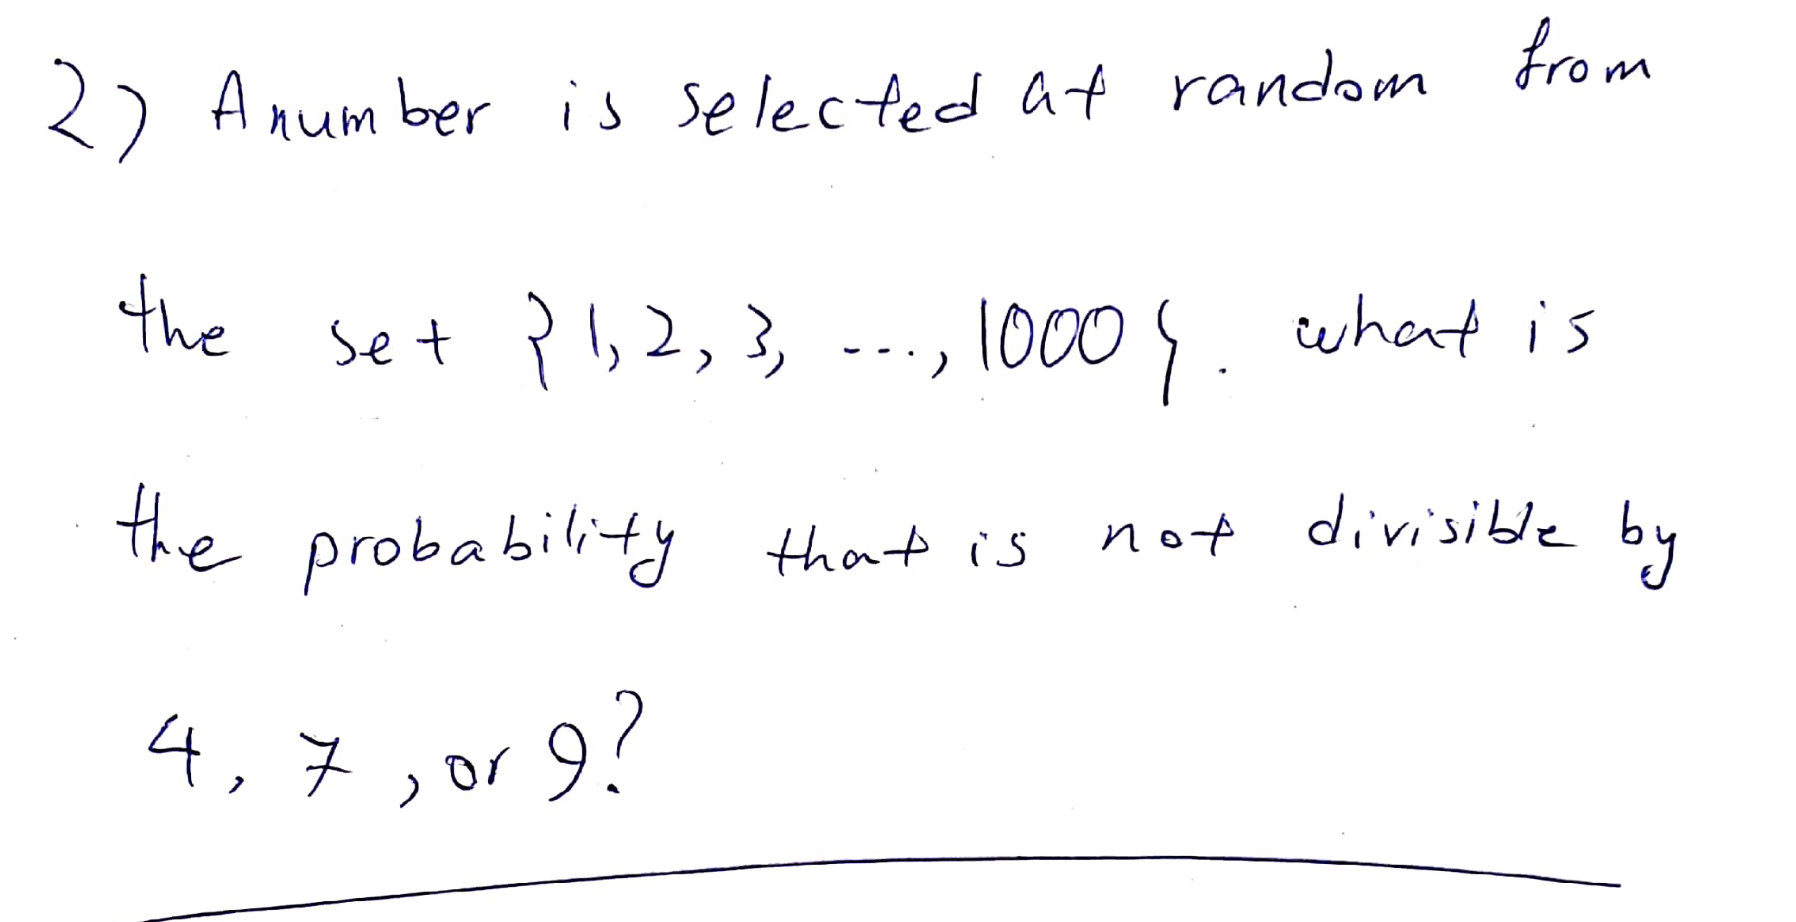 2) A number is selected at random from
the set {1, 2, 3, ---., 1000}. what is
the probability that is not divisible by
4, 7, or 9?